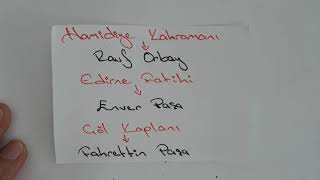 Hamidiye Kahramanı
Rauf Orbay
Edirne Fatihi
Enver Paşa
Çöl Kaplanı
Fahrettin Paşa